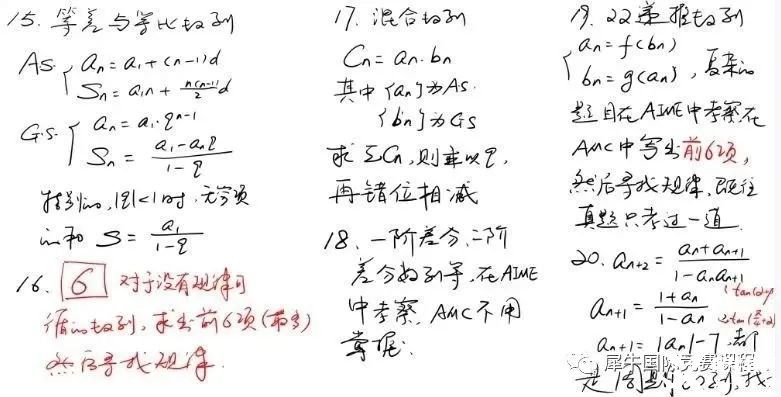 15. 等差与等比数列
A.S. { an = a1 + (n-1)d
Sn = a1n + n(n-1)/2 d
G.S. { an = a1·q^(n-1)
Sn = (a1 - anq)/(1 - q)
特别的, |q|<1时, 无穷项
的和 S = a1/(1-q)
16. 6 对于没有规律可
循的数列, 求出前6项(最多)
然后寻找规律.
17. 混合数列
Cn = an·bn
其中{an}为A.S.
{bn}为G.S
求ΣCn, 则乘以q,
再错位相减
18. 一阶差分、二阶
差分数列等, 在AIME
中考察, AMC不用
掌握.
19. 22递推数列
{ an = f(bn)
bn = g(an) , 复杂的
题目在AIME中考察在
AMC中写出前6项,
然后寻找规律. 既往
真题只考过一道.
20. an+2 = (an + an+1)/(1 - an an+1)
an+1 = (1 + an)/(1 - an)
an+1 = |an| - 7, 都
是周期数列, 找
犀牛国际竞赛课程